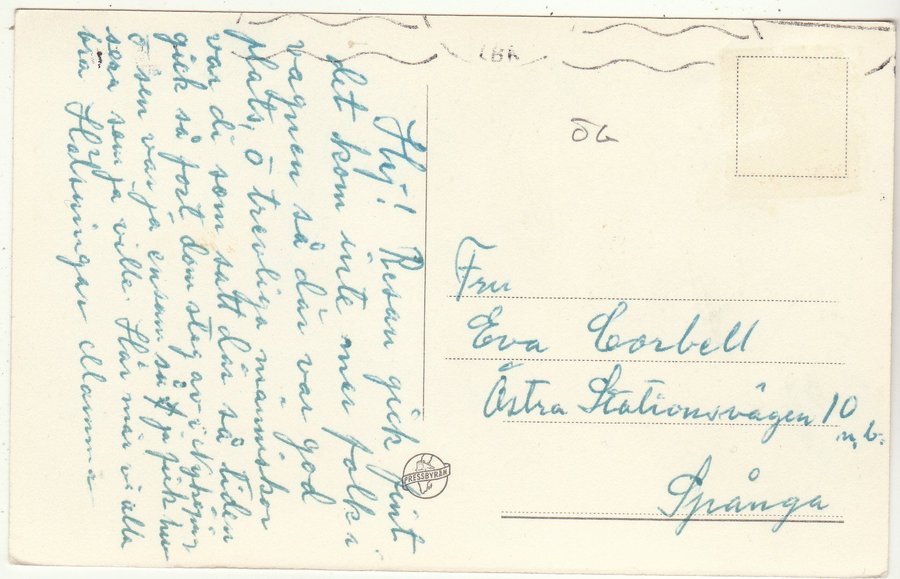 Hej! Resan gick fint
det kom inte mer folk i
vagnen så där var god
plats, ö trevliga människor
var di som satt där så tiden
gick så fort dom steg av i Nyköping
ö sen var ja ensam så ja fick
sova som ja ville. Här mår vi alla
bra Hälsningar Mamma
ÖG
Fru
Eva Corbell
Östra Stationsvägen 10
n. b.
Spånga
PRESSBYRÅN